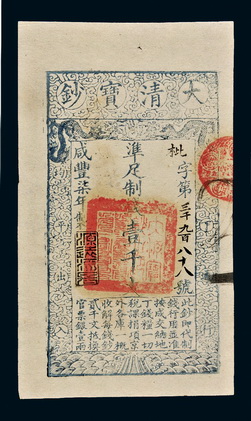 大清寶鈔
枇字第三千九百八十八號
準足制錢壹千文
咸豐柒年製
此鈔即代制
錢行用並准
按成交納地
丁錢糧一切
稅課捐項京
外各庫一概
收解每錢鈔
貳千文抵換
官票銀壹兩
天下通行
均平出入